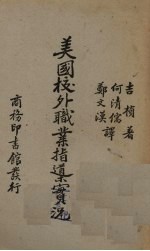 吉楨著
何清儒
鄭文漢譯
美國校外職業指導實況
商務印書館發行